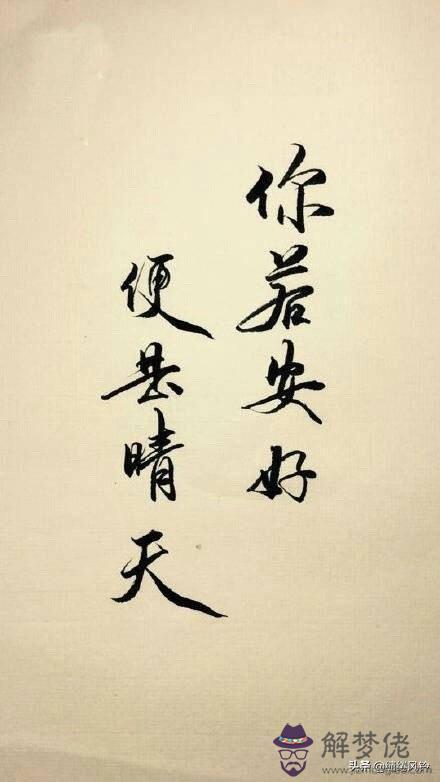 你若安好
便是晴天
解梦佬
头条